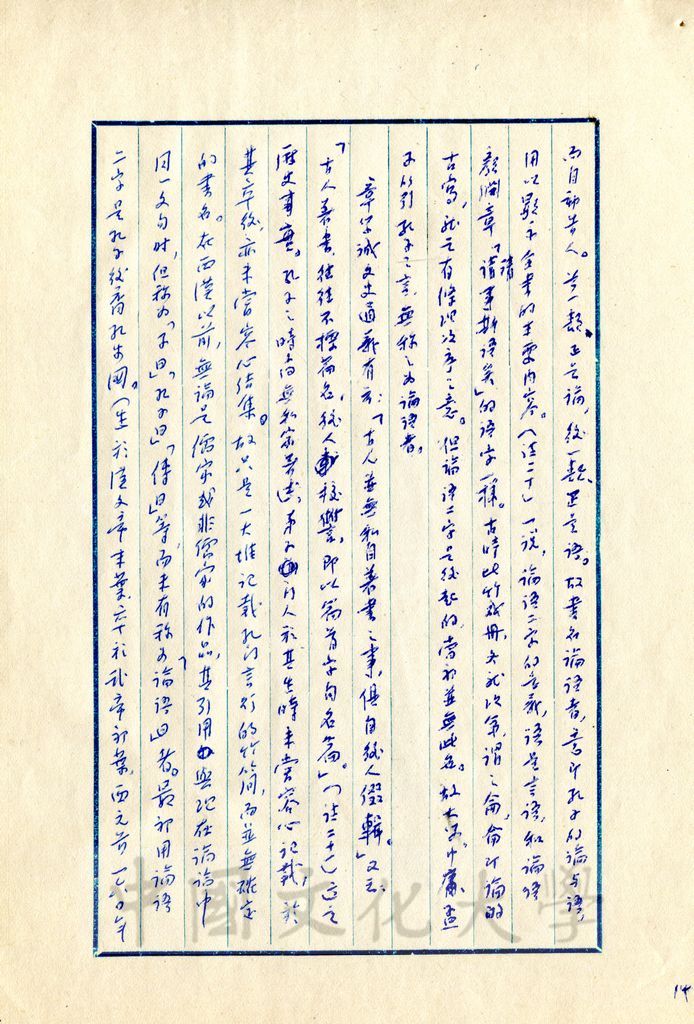 而自動告人。前一類正是論,後一類正是語。故書名論語者,意即孔子的論與語,
用以顯示全書的主要內容。(註二十)一說,論語二字的意義,語是言語,和論語
顏淵章「請事斯語矣」的語字一樣。古時比竹成冊,各就次第,謂之侖,侖即論的
請
古寫,就是有條理次序之意。但論語二字是後起的,當初並無此名。故大學中庸孟
子所引孔子之言,無稱之為論語者。
章學誠文史通義有云:「古人並無私自著書之事,俱自後人綴輯。」又云:
「古人著書,往往不標篇名,後人校讐,即以篇首字句名篇。」(註二十一)這是
歷史事實。孔子之時尚無私家著述,弟子門人於其生時未嘗容心記載,於
其卒後,亦未嘗容心結集。故只是一大堆記載孔門言行的竹簡,而並無確定
的書名。在西漢以前,無論是儒家或非儒家的作品,其引用與現在論語中
同一文句時,但稱為「子曰」「孔子曰」「傳曰」等,而未有稱為「論語」曰者。最初用論語
二字是孔子後裔孔安國。(生於漢文帝末葉,卒於武帝初葉,西元前一七〇年
14
中國文化大學